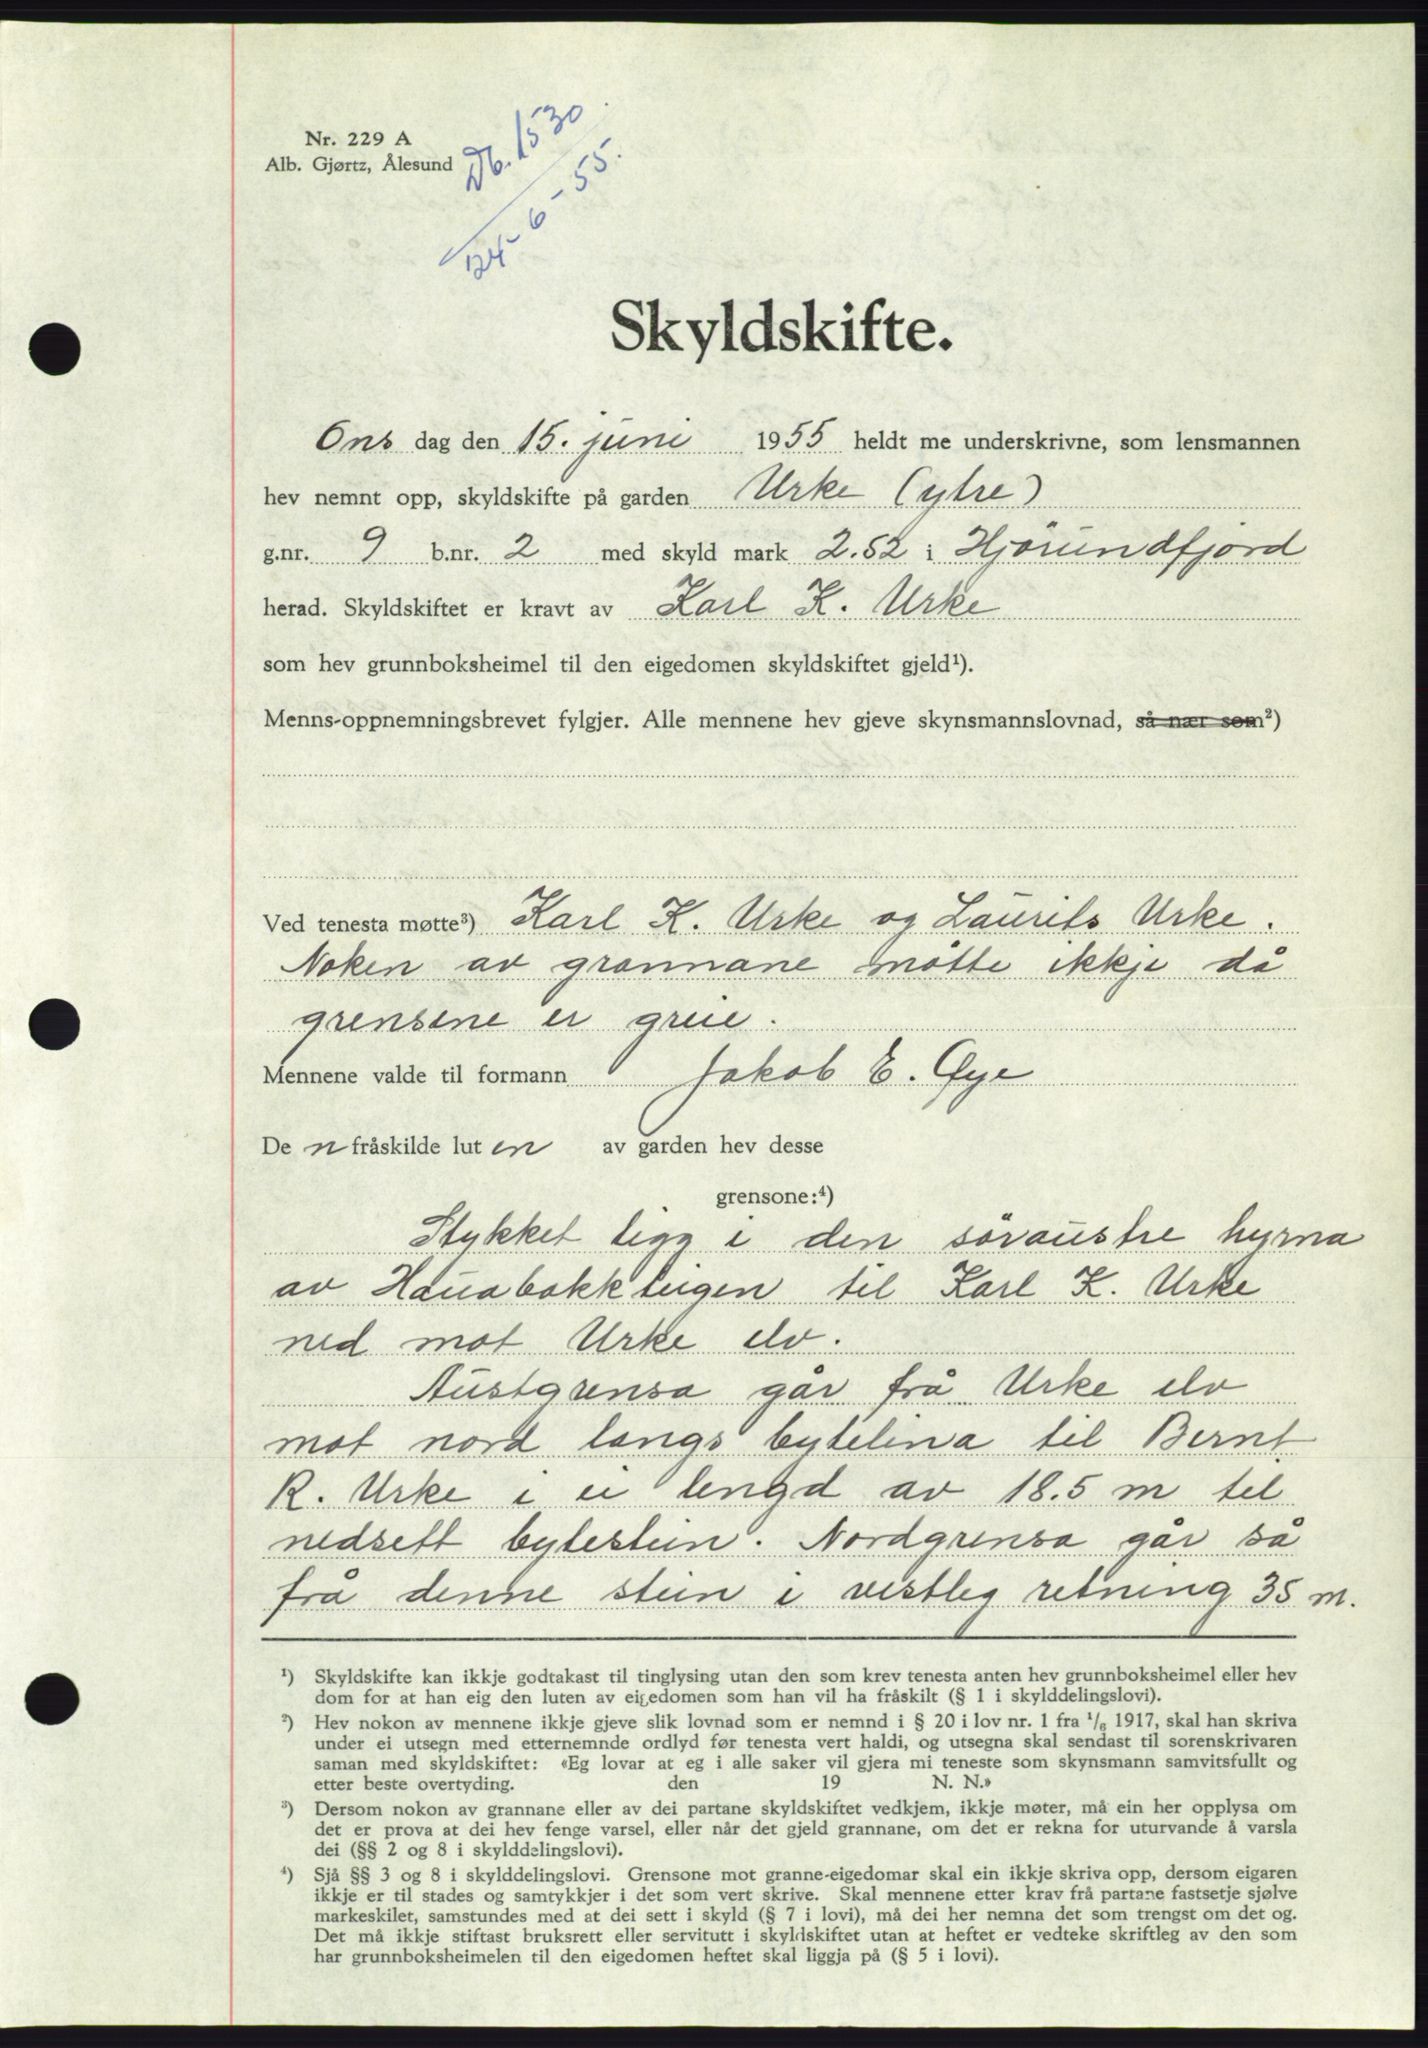 Nr. 229 A
Alb. Gjørtz, Ålesund
Db. 1530
24-6-55.
Skyldskifte.
Ons dag den 15. juni 1955 heldt me underskrivne, som lensmannen
hev nemnt opp, skyldskifte på garden Urke (ytre)
g.nr. 9 b.nr. 2 med skyld mark 2.52 i Hjörundfjord
herad. Skyldskiftet er kravt av Karl K. Urke
som hev grunnboksheimel til den eigedomen skyldskiftet gjeld¹).
Menns-oppnemningsbrevet fylgjer. Alle mennene hev gjeve skynsmannslovnad, så nær som²)
Ved tenesta møtte³) Karl K. Urke og Laurits Urke.
Noken av grannane møtte ikkje då
grensene er greie.
Mennene valde til formann Jakob E. Øye
De n fråskilde lut en av garden hev desse
grensone:⁴)
Stykket ligg i den söraustre hyrna
av Hauabakkteigen til Karl K. Urke
ned mot Urke elv.
Austgrensa går frå Urke elv
mot nord langs bytelina til Bernt
R. Urke i ei lengd av 18.5 m til
nedsett bytestein. Nordgrensa går så
frå denne stein i vestleg retning 35 m.
¹) Skyldskifte kan ikkje godtakast til tinglysing utan den som krev tenesta anten hev grunnboksheimel eller hev
dom for at han eig den luten av eigedomen som han vil ha fråskilt (§ 1 i skylddelingslovi).
²) Hev nokon av mennene ikkje gjeve slik lovnad som er nemnd i § 20 i lov nr. 1 fra ¹/₆ 1917, skal han skriva
under ei utsegn med etternemnde ordlyd før tenesta vert haldi, og utsegna skal sendast til sorenskrivaren
saman med skyldskiftet: «Eg lovar at eg i alle saker vil gjera mi teneste som skynsmann samvitsfullt og
etter beste overtyding. den 19 N. N.»
³) Dersom nokon av grannane eller av dei partane skyldskiftet vedkjem, ikkje møter, må ein her opplysa om
det er prova at dei hev fenge varsel, eller når det gjeld grannane, om det er rekna for uturvande å varsla
dei (§§ 2 og 8 i skylddelingslovi).
⁴) Sjå §§ 3 og 8 i skylddelingslovi. Grensone mot granne-eigedomar skal ein ikkje skriva opp, dersom eigaren
ikkje er til stades og samtykkjer i det som vert skrive. Skal mennene etter krav frå partane fastsetje sjølve
markeskilet, samstundes med at dei sett i skyld (§ 7 i lovi), må dei her nemna det som trengst om det og.
Det må ikkje stiftast bruksrett eller servitutt i skyldskiftet utan at heftet er vedteke skriftleg av den som
har grunnboksheimelen til den eigedomen heftet skal liggja på (§ 5 i lovi).